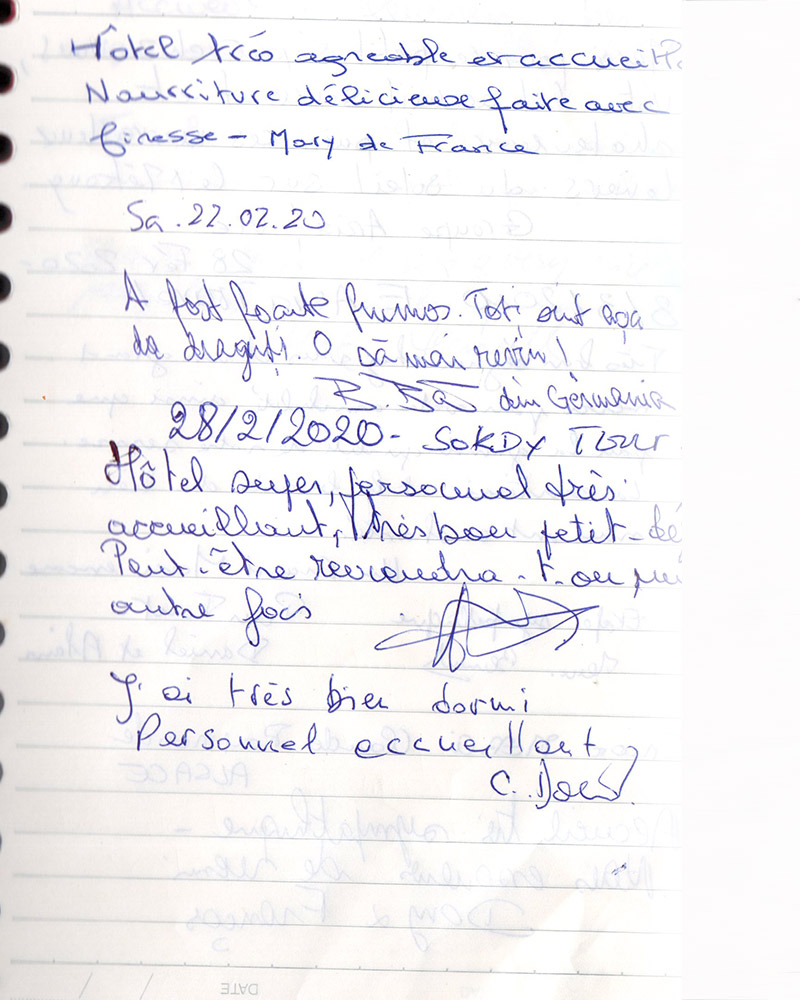 Hôtel très agréable et accueill
Nourriture délicieuse faite avec
finesse - Mary de France
Sa. 22.02.20
A fost foarte frumos. Toți sunt așa
de drăguți. O să mai revin!
din Germania
28/2/2020 - SOKDY TOUR
Hôtel super, personnel très
accueillant, très bon petit-dé
Peut-être reviendra-t-on une
autre fois
J'ai très bien dormi
Personnel accueillant
C.
DATE